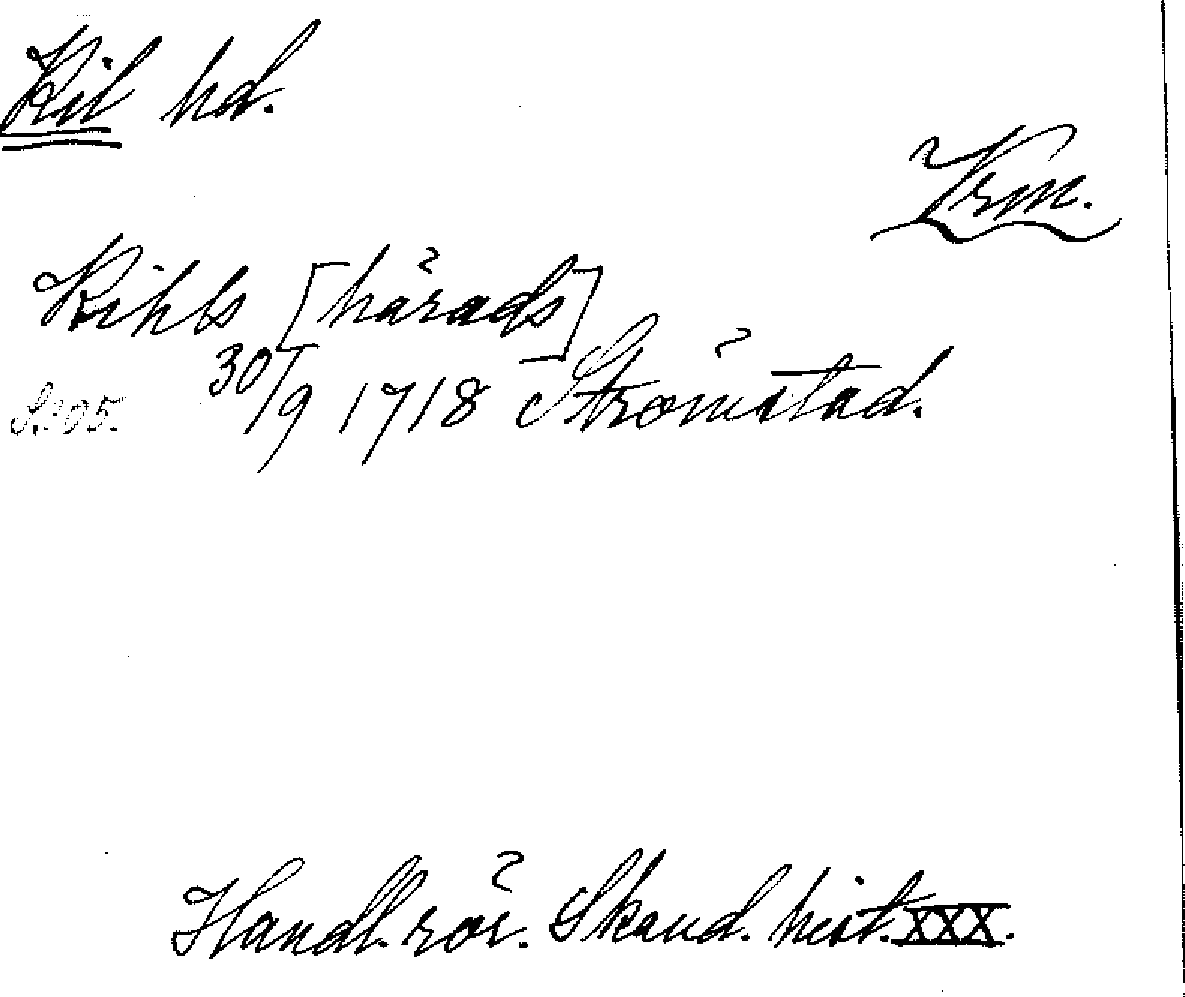 Kil hd.
Vrm.
Kihls [härads]
S. 205. 30/9 1718 Strömstad.
Handl. rör. Skand. hist. XXX.